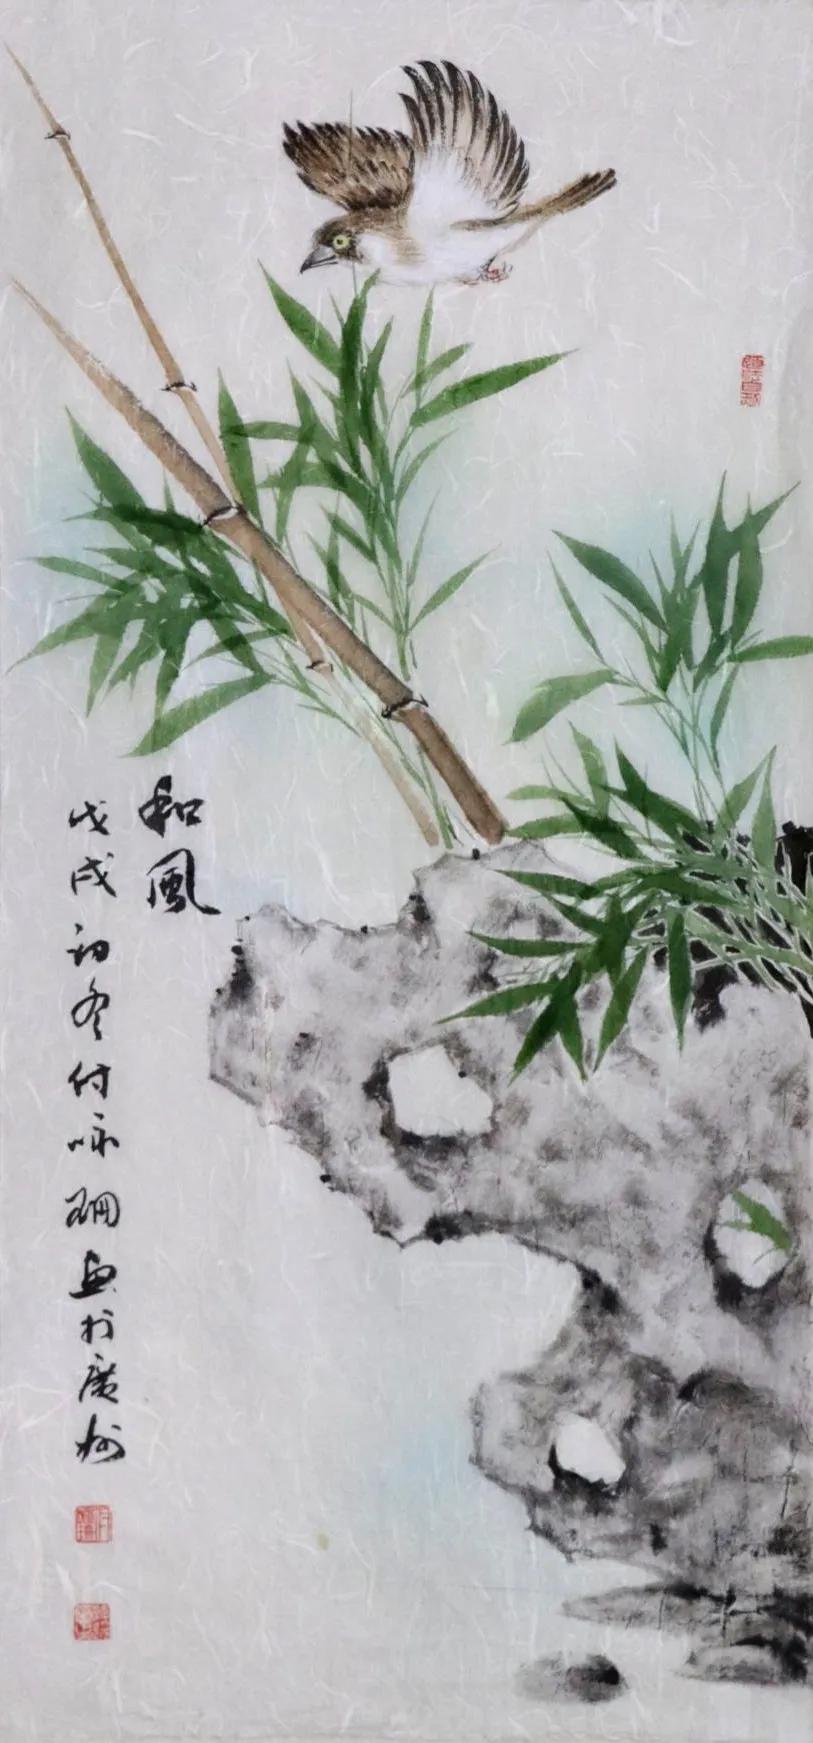 和風
戊戌初冬付咏珊畫於廣州